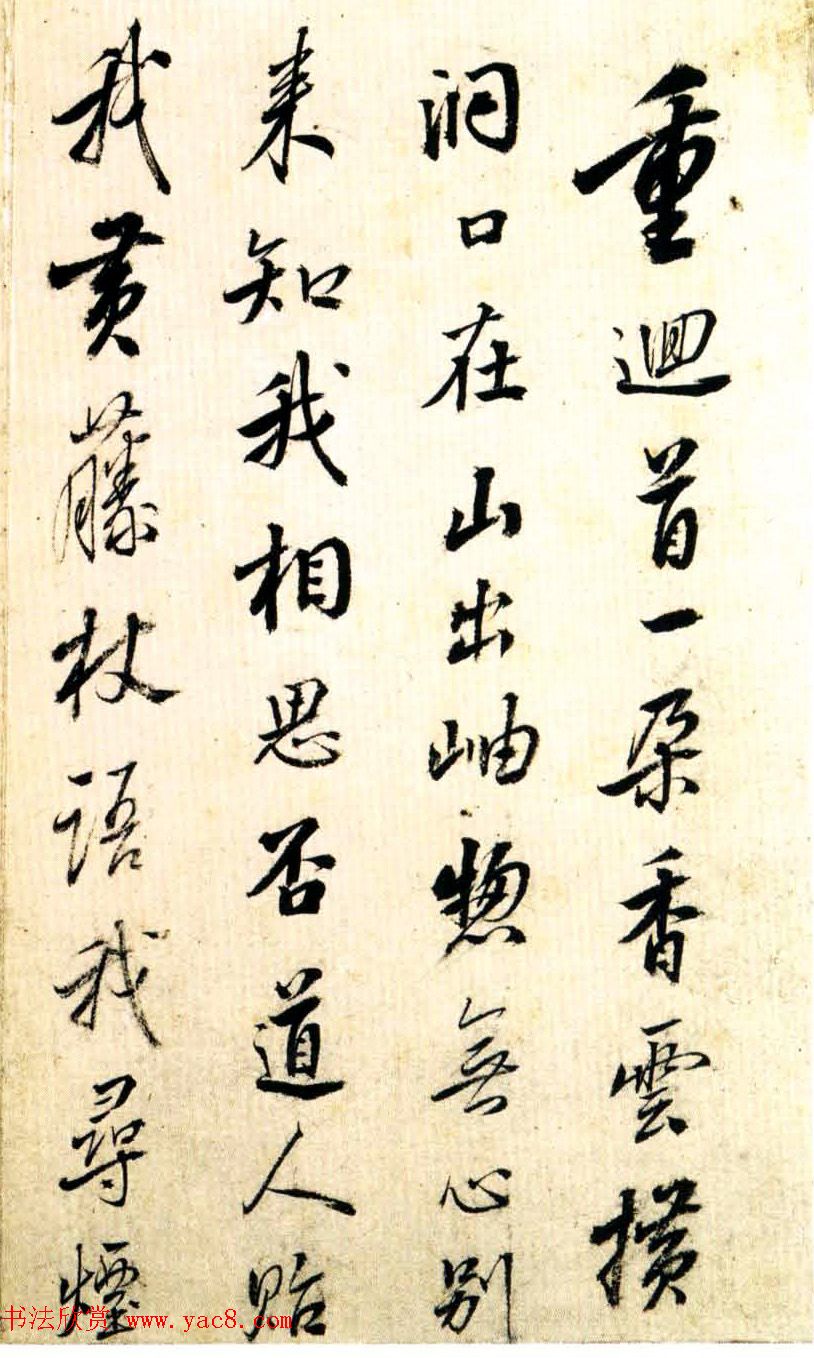 重迴首一朶香雲横
洞口在山出岫惣無心别
来知我相思否道人貽
我黄藤杖語我尋煙
书法欣赏 www.yac8.com